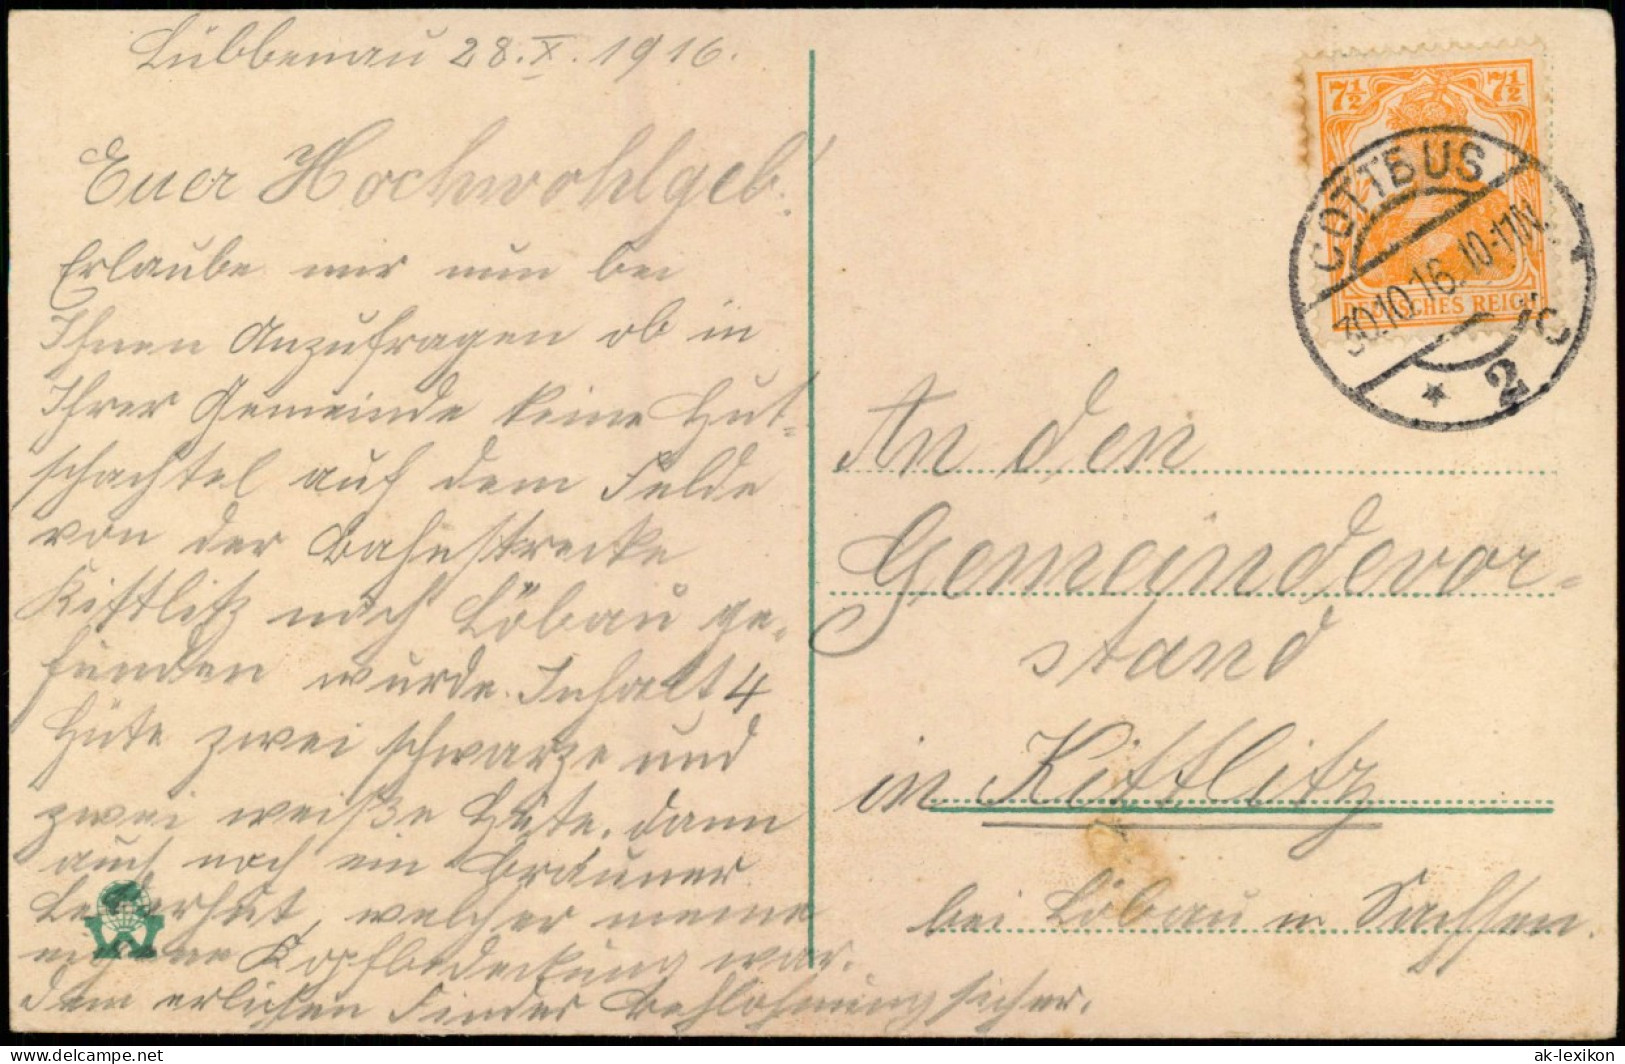 Lübbenau 28.X.1916.
Euer Hochwohlgeb!
Erlaube mir nun bei
Ihnen Anzufragen ob in
Ihrer Gemeinde keine Hut-
schachtel auf dem Felde
von der Bahnstrecke
Kittlitz nach Löbau ge-
funden wurde. Inhalt 4
Hüte zwei schwarze und
zwei weiße Hüte, dann
auch noch ein Brauner
Lederhut, welcher meine
eigene Kopfbedeckung war.
dem erlichen Finder Behlohnung sicher.
7½ 7½
DEUTSCHES REICH
COTTBUS
30.10.16. 10-11N.
* 2
An den
Gemeindevor-
stand
in Kittlitz
bei Löbau in Sachsen.
delcampe.net
ak-lexikon